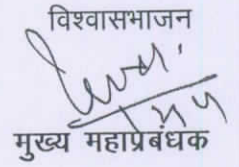 विश्वासभाजन
मुख्य महाप्रबंधक